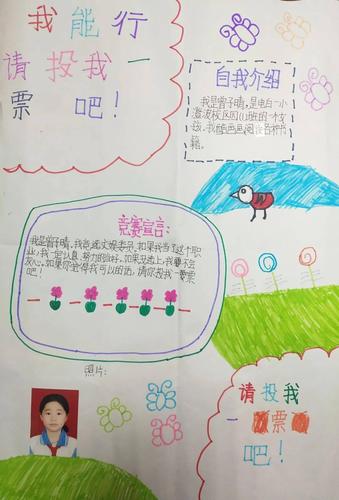 我能行
请投我一
票吧！
自我介绍
我是曾子晴，是电白一小
澄波校区四(1)班的一个女
孩。我酷爱画画阅读各种书
籍。
竞赛宣言：
我是曾子晴，我竞选文娱委员，如果我当了这个职
业，我一定认真、努力的做好。如果没选上，我
灰心。如果你觉得我可以的话，请你投我一票
吧！
照片：
请投我
一票
吧！